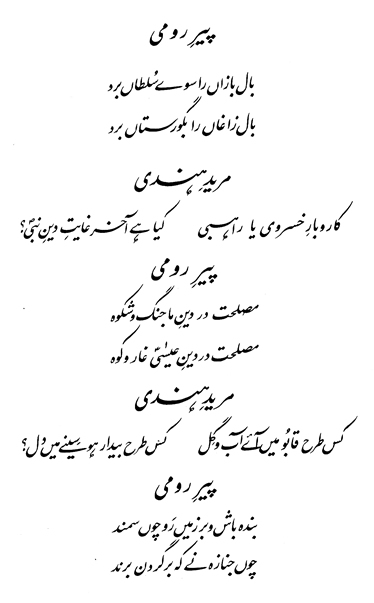 پیرِ رومی
بالِ بازاں را سوے سُلطاں برد
بالِ زاغاں را بگورستاں برد
مریدِ ہندی
کاروبارِ خسروی یا راہبی کیا ہے آخر غایتِ دینِ نبیؐ؟
پیرِ رومی
مصلحت در دینِ ما جنگ و شکوہ
مصلحت در دینِ عیسٰیؑ غار و کوہ
مریدِ ہندی
کس طرح قابُو میں آئے آب و گِل کس طرح بیدار ہو سینے میں دل؟
پیرِ رومی
بندہ باش و بر زمیں رَو چوں سمند
چوں جنازہ نے کہ بر گردن برند